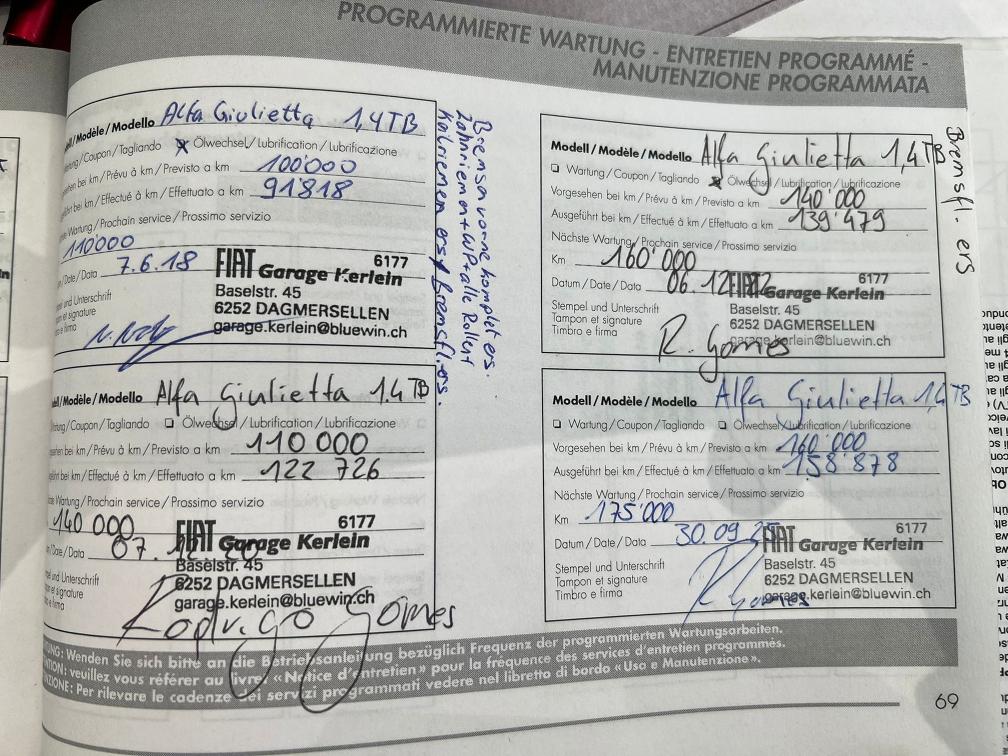 PROGRAMMIERTE WARTUNG - ENTRETIEN PROGRAMMÉ -
MANUTENZIONE PROGRAMMATA
ell/Modèle/Modello Alfa Giulietta 1,4TB
tung/Coupon/Tagliando Ölwechsel/Lubrification/Lubrificazione
ehen bei km/Prévu à km/Previsto a km 100'000
ührt bei km/Effectué à km/Effettuato a km 91'818
Wartung/Prochain service/Prossimo servizio
110'000
/Date/Data 7.6.18
FIAT Garage Kerlein 6177
Baselstr. 45
6252 DAGMERSELLEN
garage.kerlein@bluewin.ch
pel und Unterschrift
on et signature
o e firma
Bremsen vorne komplet ers.
Zahnriemen+WP+alle Rollen+
Keilriemen ers/Bremsfl. ers.
ell/Modèle/Modello Alfa Giulietta 1.4 TB
tung/Coupon/Tagliando Ölwechsel/Lubrification/Lubrificazione
ehen bei km/Prévu à km/Previsto a km 110 000
ührt bei km/Effectué à km/Effettuato a km 122 726
Wartung/Prochain service/Prossimo servizio
140 000
/Date/Data 07.
FIAT Garage Kerlein 6177
Baselstr. 45
6252 DAGMERSELLEN
garage.kerlein@bluewin.ch
pel und Unterschrift
on et signature
o e firma
Gomes
Modell/Modèle/Modello Alfa Giulietta 1,4 TB
Wartung/Coupon/Tagliando Ölwechsel/Lubrification/Lubrificazione
Vorgesehen bei km/Prévu à km/Previsto a km 140'000
Ausgeführt bei km/Effectué à km/Effettuato a km 139'479
Nächste Wartung/Prochain service/Prossimo servizio
Km 160'000
Datum/Date/Data 06.12
FIAT Garage Kerlein 6177
Baselstr. 45
6252 DAGMERSELLEN
garage.kerlein@bluewin.ch
Stempel und Unterschrift
Tampon et signature
Timbro e firma
R. Gomes
Bremsfl. ers
Modell/Modèle/Modello Alfa Giulietta 1,4 TB
Wartung/Coupon/Tagliando Ölwechsel/Lubrification/Lubrificazione
Vorgesehen bei km/Prévu à km/Previsto a km 160'000
Ausgeführt bei km/Effectué à km/Effettuato a km 158'878
Nächste Wartung/Prochain service/Prossimo servizio
Km 175'000
Datum/Date/Data 30.09
FIAT Garage Kerlein 6177
Baselstr. 45
6252 DAGMERSELLEN
garage.kerlein@bluewin.ch
Stempel und Unterschrift
Tampon et signature
Timbro e firma
R. Gomes
UNG: Wenden Sie sich bitte an die Betriebsanleitung bezüglich Frequenz der programmierten Wartungsarbeiten.
NTION: veuillez vous référer au livret «Notice d'entretien» pour la fréquence des services d'entretien programmés.
NZIONE: Per rilevare le cadenze dei servizi programmati vedere nel libretto di bordo «Uso e Manutenzione».
69